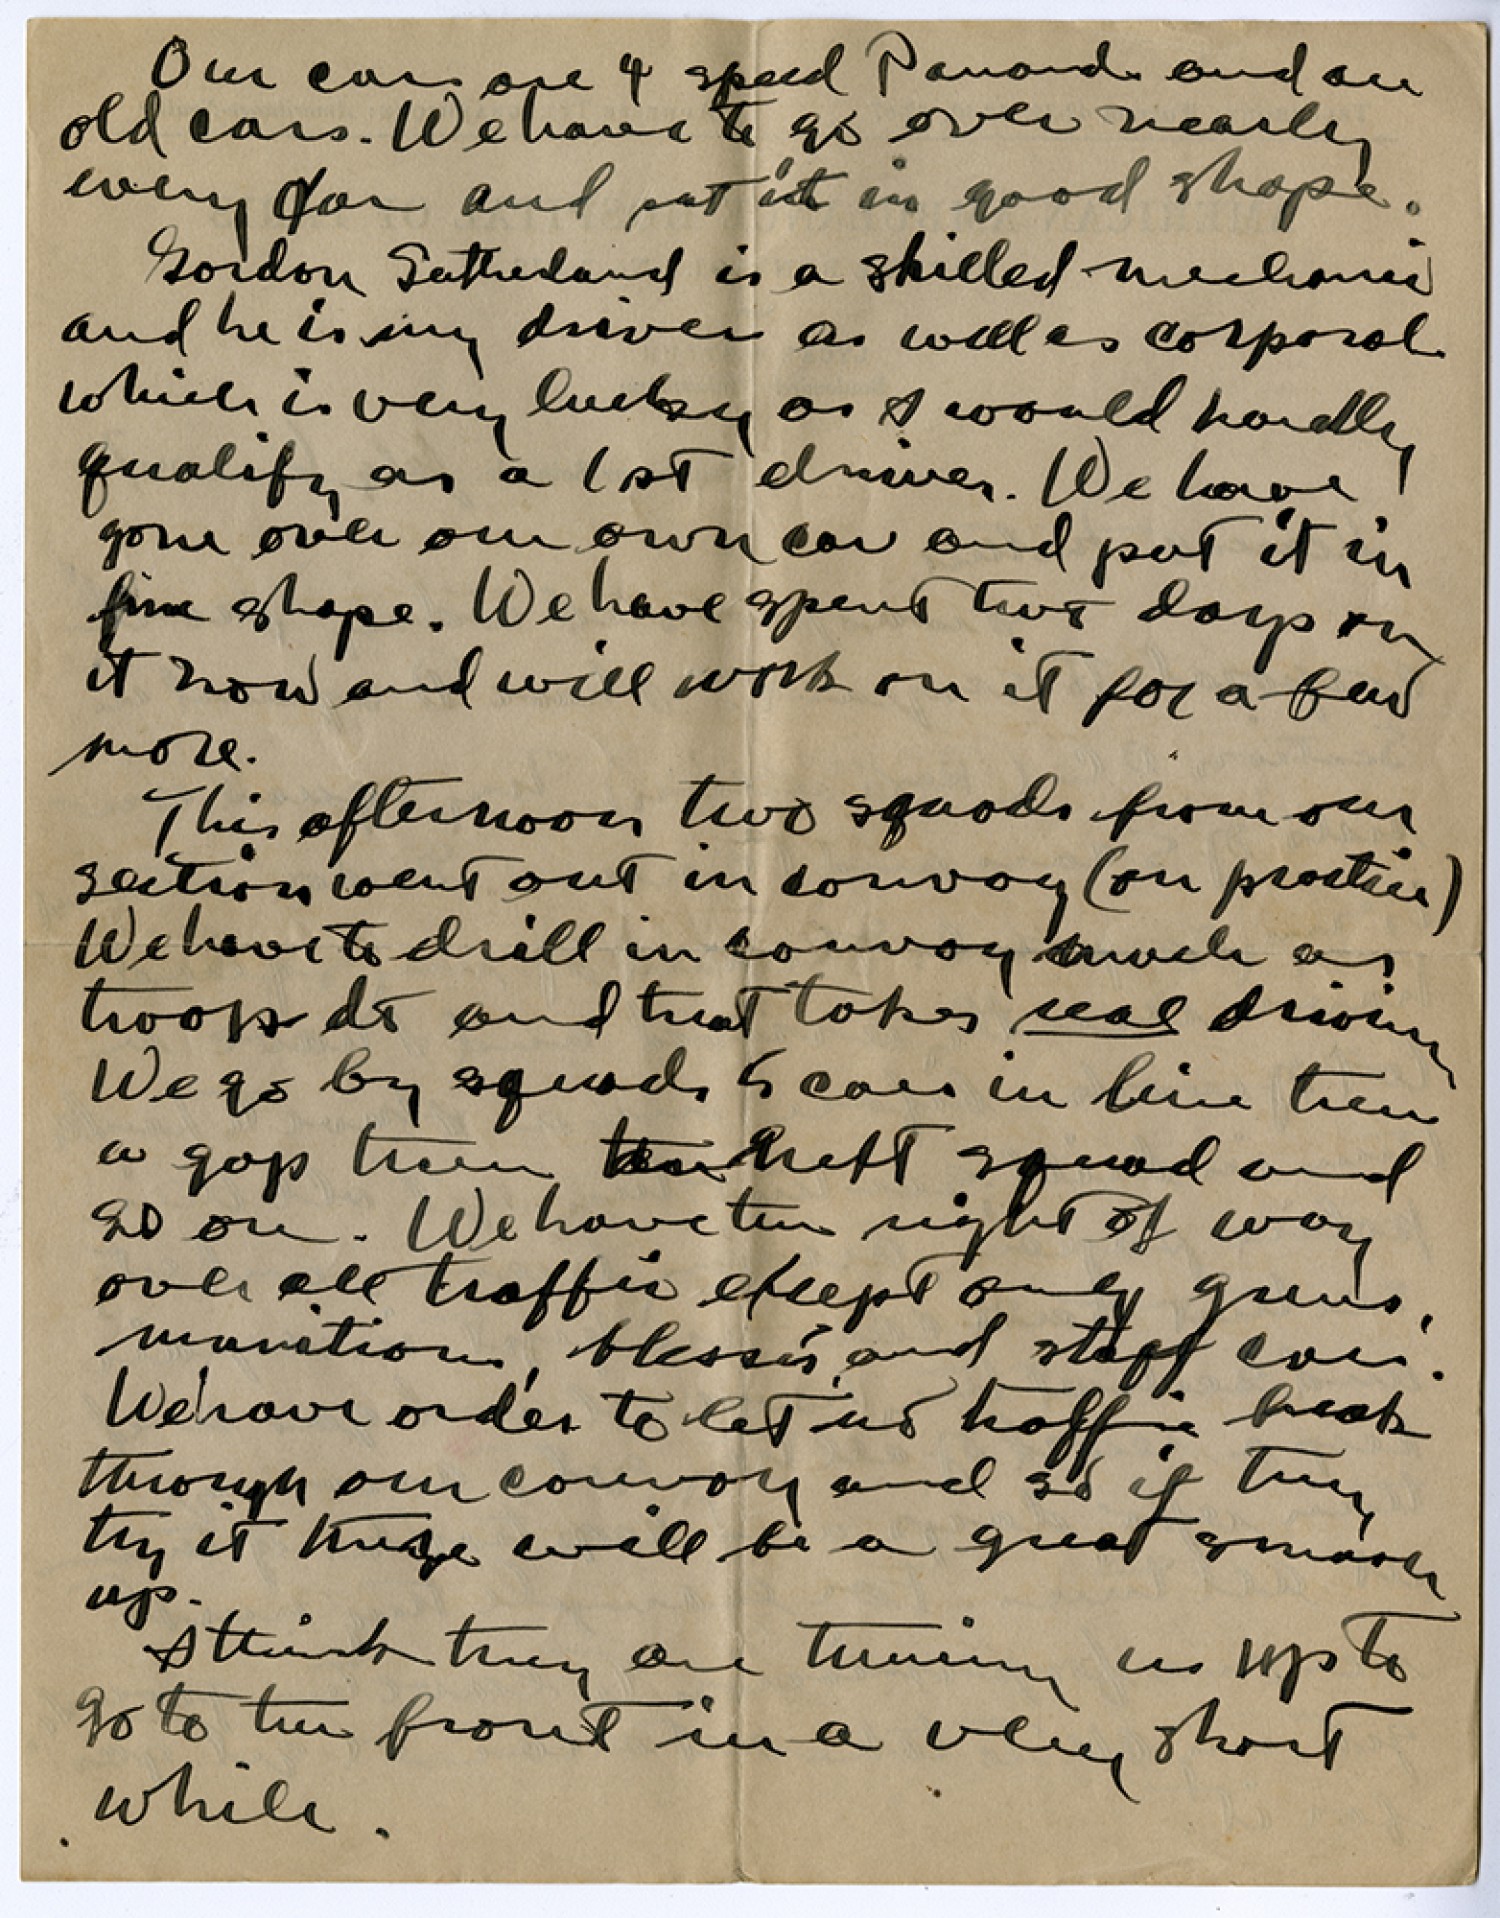 Our cars are 4 speed Panards and are
old cars. We have to go over nearly
every car and put it in good shape.
Gordon Sutherland is a skilled mechanic
and he is my driver as well as corporal
which is very lucky as I would hardly
qualify as a 1st driver. We have
gone over our own car and put it in
fine shape. We have spent two days on
it now and will work on it for a few
more.
This afternoon two squads from our
section went out in convoy (on practice)
We have to drill in convoy much as
troops do and that takes real driving
We go by squads 5 cars in line then
a gap then next squad and
so on. We have the right of way
over all traffic except only guns,
munitions, blessés, and staff cars.
We have orders to let no traffic break
through our convoy and so if they
try it there will be a great smash
up.
I think they are tuning us up to
go to the front in a very short
while.